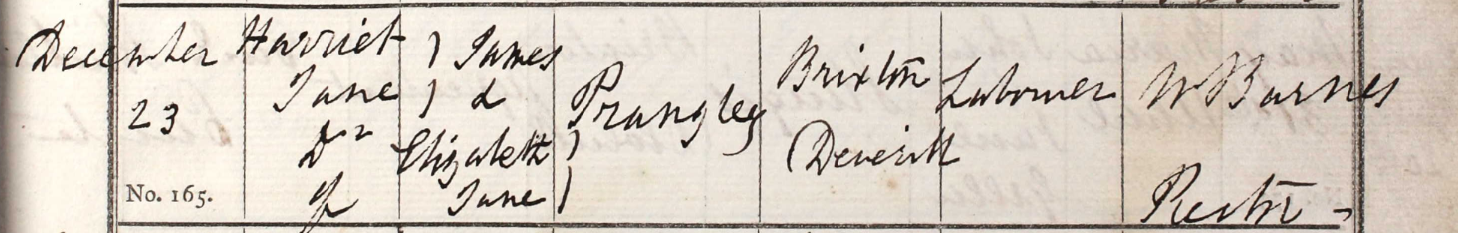 December
23
No. 165.
Harriet
Jane
Dr
of
James
&
Elizabeth
Jane
Prangley
Brixton
Deverill
Labourer
W Barnes
Rector